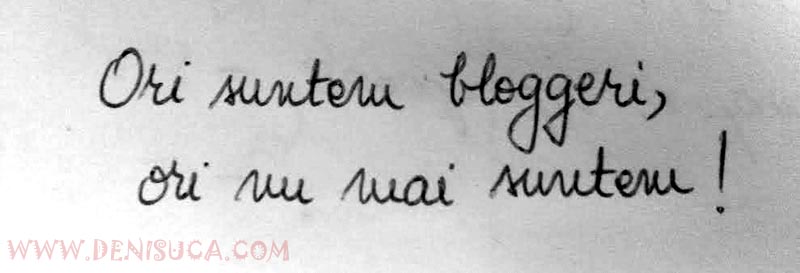 Ori suntem bloggeri,
ori nu mai suntem!
WWW.DENISUCA.COM